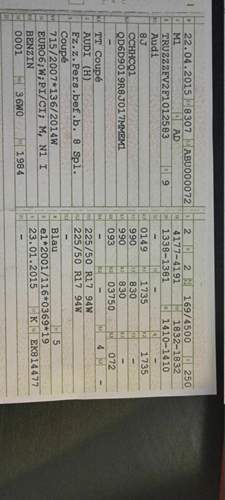 22.04.2015 8307 ABU000072 1 2 2 169/4500 250
M1 AD 4177-4191 1832-1832
TRUZZZFV2F1012583 9 1338-1381 1410-1410
Audi - - -
8J 0149 1735 1735
CCHHCQ1 990 830 -
QD6D9019R8J017MMEM1 990 830 -
093 03750 072
TT Coupé - - 4 -
AUDI (H) 225/50 R17 94W
Fz.z.Pers.bef.b. 8 Spl. 225/50 R17 94W
Coupé -
715/2007*136/2014W Blau 5
EURO6;W;PI/CI; M, N1 I e1*2001/116*0369*19
BENZIN 23.01.2015 K EK814477
0001 36W0 1984